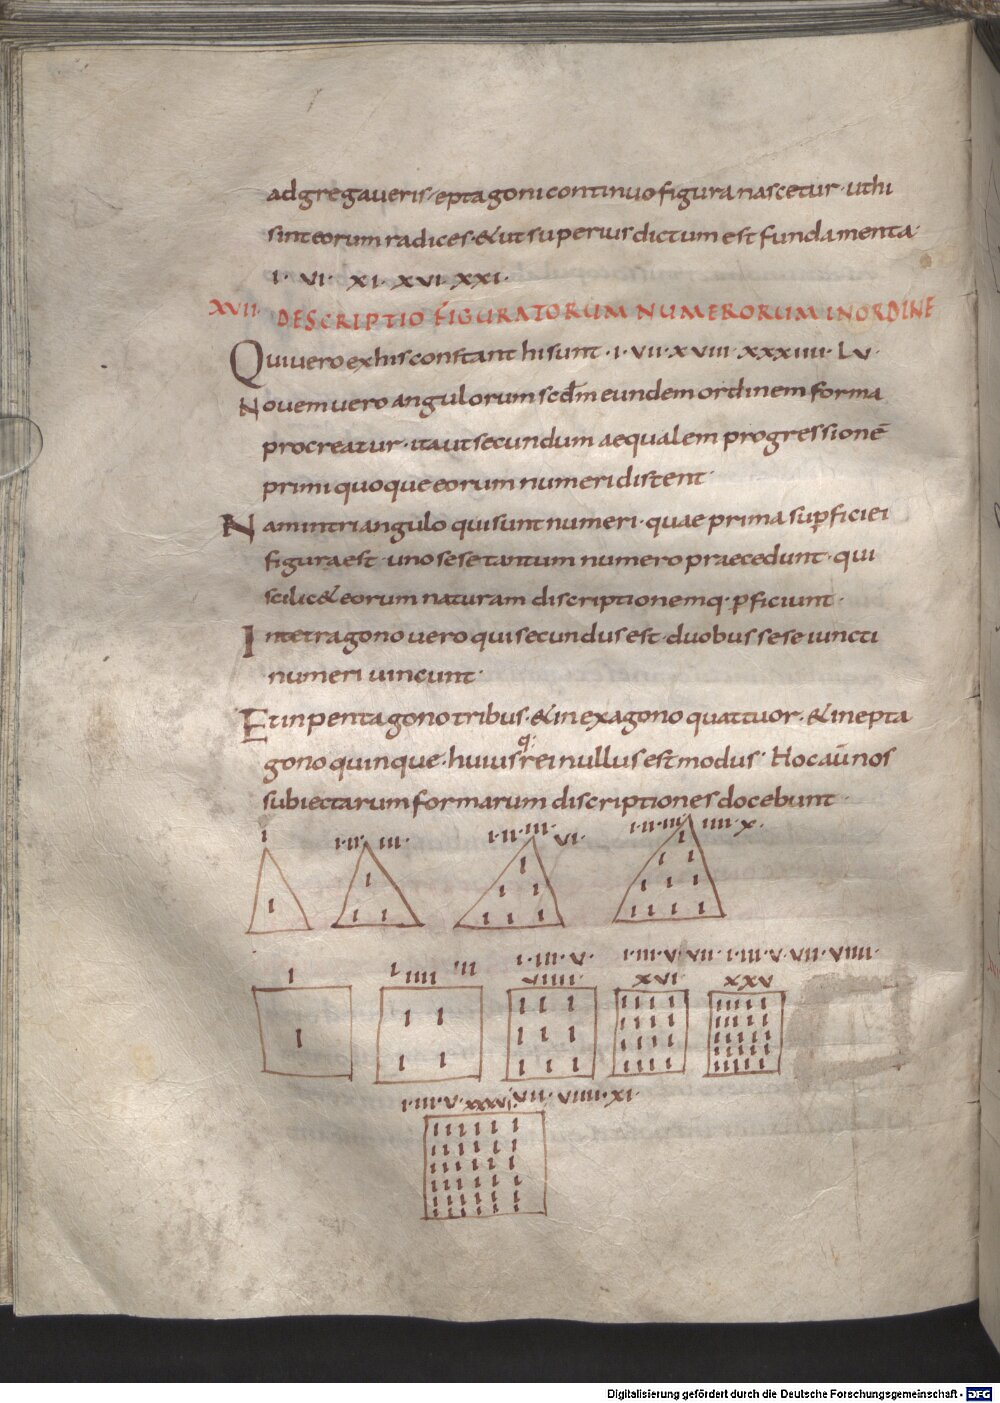 adgregaueris·eptagoni continuo figura nascetur· uthi
sint eorum radices·&ut superius dictum est fundamenta·
I· VI· XI· XVI· XXI·
XVII· DESCRIPTIO FIGURATORUM NUMERORUM IN ORDINE
Qui uero ex his constant hi sunt· I· VII· XVIII· XXXIIII· LV·
Nouem uero angulorum scdm eundem ordinem forma
procreatur· ita ut secundum aequalem progressionē
primi quoque eorum numeri distent·
Nam in triangulo qui sunt numeri· quae prima supficiei
figura est· uno sese tantum numero praecedunt· qui
scilic& eorum naturam discriptionemq· pficiunt·
In tetragono uero qui secundus est· duobus sese iuncti
numeri uincunt·
Et in pentagono tribus·&in exagono quattuor·&in epta
gono quinque· huiusq· rei nullus est modus· Hoc aū nos
subiectarum formarum discriptiones docebunt·
I I·II· III· I·II·III· VI· I·II·III· IIII· X·
I
I
I I
I
I I
I I I
I
I I
I I I
I I I I
I I III I·III·V· I·III·V·VII· I·III·V·VII·VIIII·
IIII VIIII· XVI· XXV
I
I I
I I
I I I
I I I
I I I
I I I I
I I I I
I I I I
I I I I
I I I I I
I I I I I
I I I I I
I I I I I
I I I I I
I·III·V· XXXVI· VII· VIIII· XI·
I I I I I I
I I I I I I
I I I I I I
I I I I I I
I I I I I I
I I I I I I
Digitalisierung gefördert durch die Deutsche Forschungsgemeinschaft - DFG